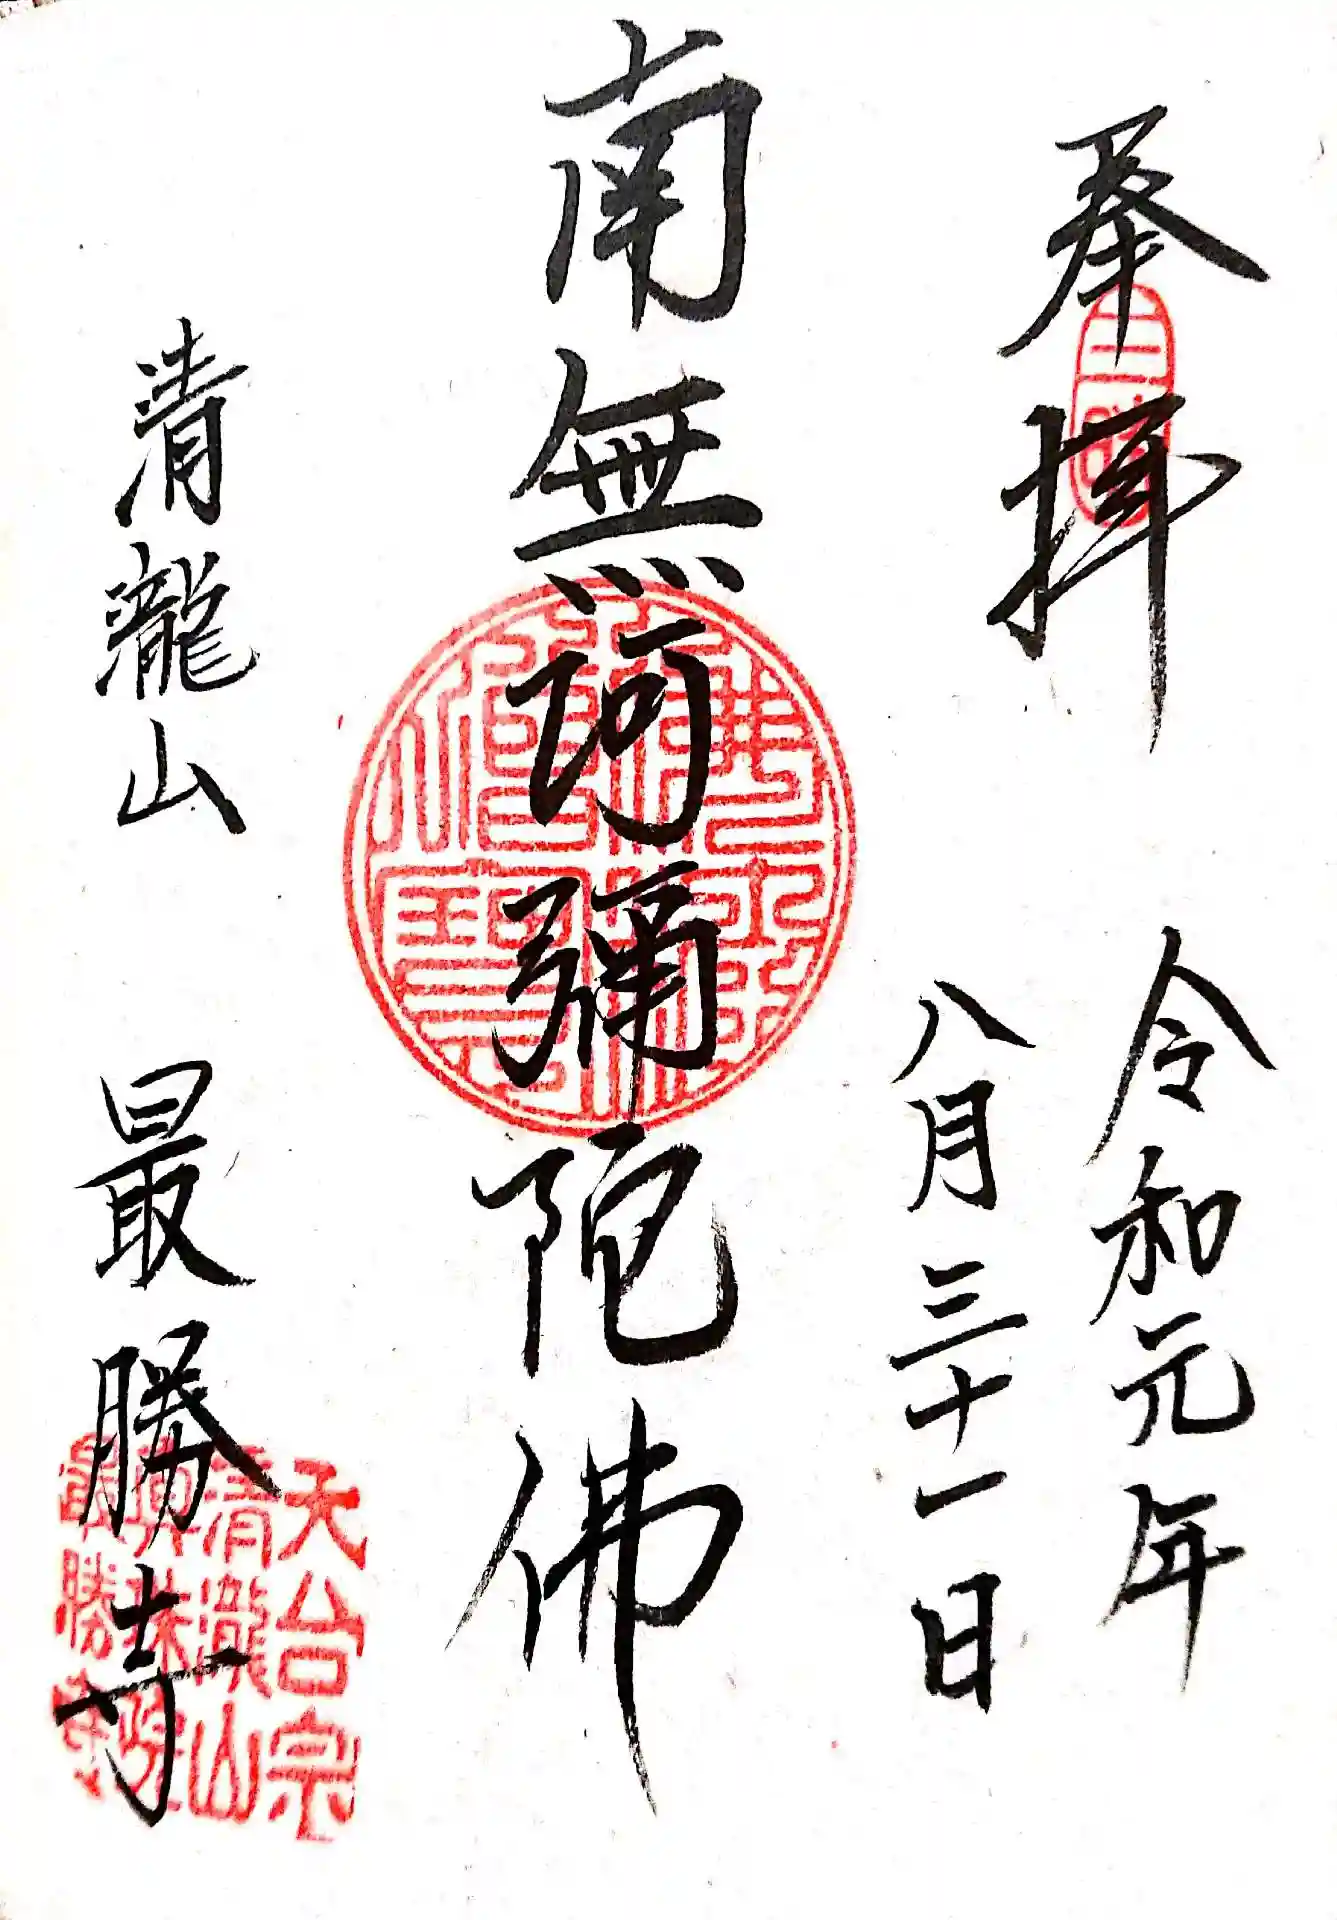 奉拝
令和元年
八月三十一日
南無阿彌陀佛
清瀧山 最勝寺
三寶
佛法僧寶
天台宗
清瀧山
最勝寺